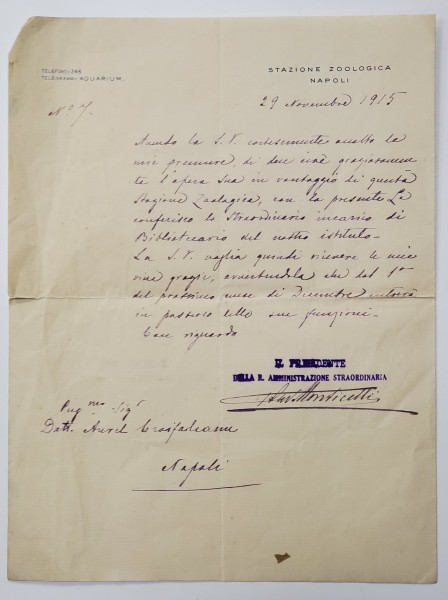 TELEFONO: 7-65
TELEGRAMMI: AQUARIUM.
STAZIONE ZOOLOGICA
NAPOLI
29 Novembre 1915
Nº 7.
Avendo la S. V. cortesemente accolto le
mie premure, di dare cioè graziosamen
te l'opera Sua in vantaggio di questa
Stazione Zoologica, con la presente Le
conferisco lo Straordinario incarico di
Bibliotecario del nostro istituto.-
La S. V. voglia quindi ricevere le mie
vive grazie, avvertendola che dal 1º
del prossimo mese di Dicembre entrerà
in possesso delle sue funzioni.-
Con riguardo
IL PRESIDENTE
DELLA R. AMMINISTRAZIONE STRAORDINARIA
Monticelli
Sigr
Dott. Aurel
Napoli